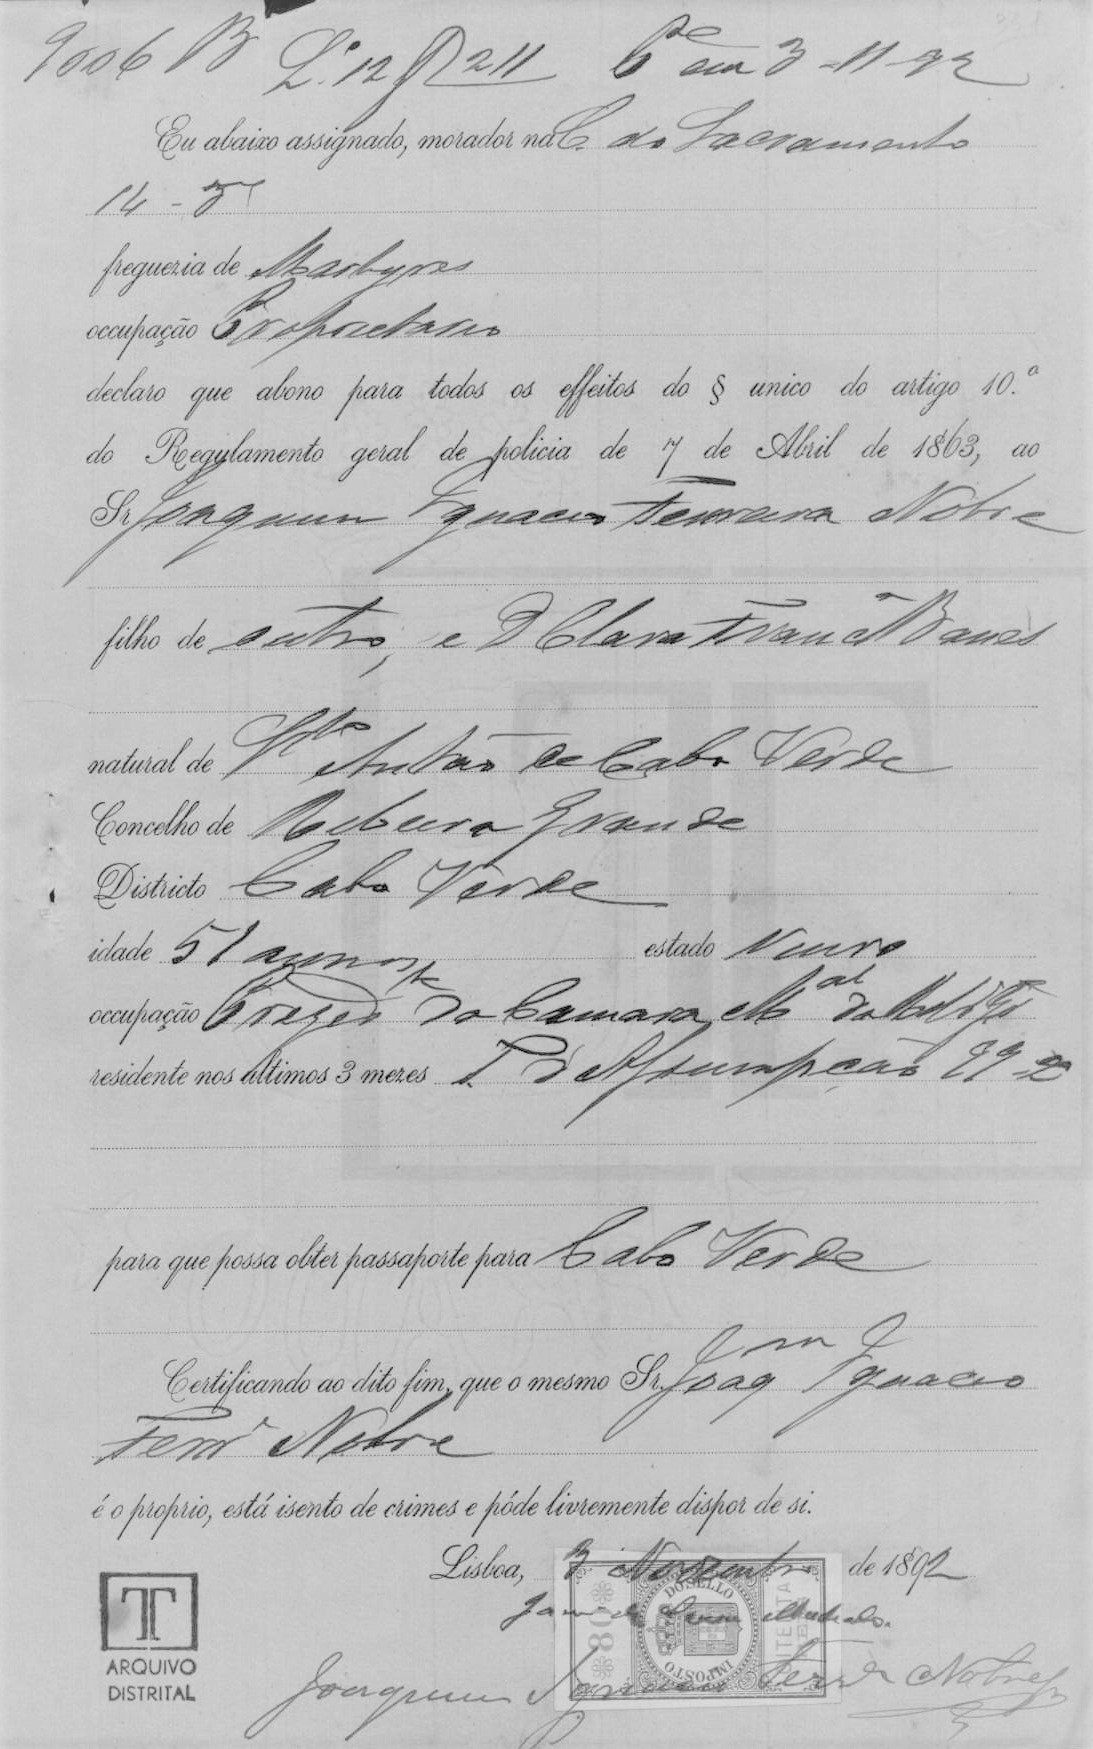 9006 B L.º 12 211 em 3-11-92
Eu abaixo assignado, morador na C. do Sacramento
14 - 3º
freguezia de Martyres
occupação Proprietario
declaro que abono para todos os effeitos do § unico do artigo 10.º
do Regulamento geral de policia de 7 de Abril de 1863, ao
Sr. Joaquim Ignacio Ferreira Nobre
filho de outro, e D Clara
natural de Sto Antão de Cabo Verde
Concelho de Ribeira Grande
Districto Cabo Verde
idade 51 annos estado Viuvo
occupação Prezide da Camara Mal da
residente nos ultimos 3 mezes d'Assumpção 99-2
para que possa obter passaporte para Cabo Verde
Certificando ao dito fim, que o mesmo Sr. Joaqm Ignacio
Ferrª Nobre
é o proprio, está isento de crimes e póde livremente dispor de si.
Lisboa, 3 Novembro de 1892
Machado.
Joaquim Ignacio Ferrª Nobre
IMPOSTO DO SELLO
80
T
ARQUIVO
DISTRITAL